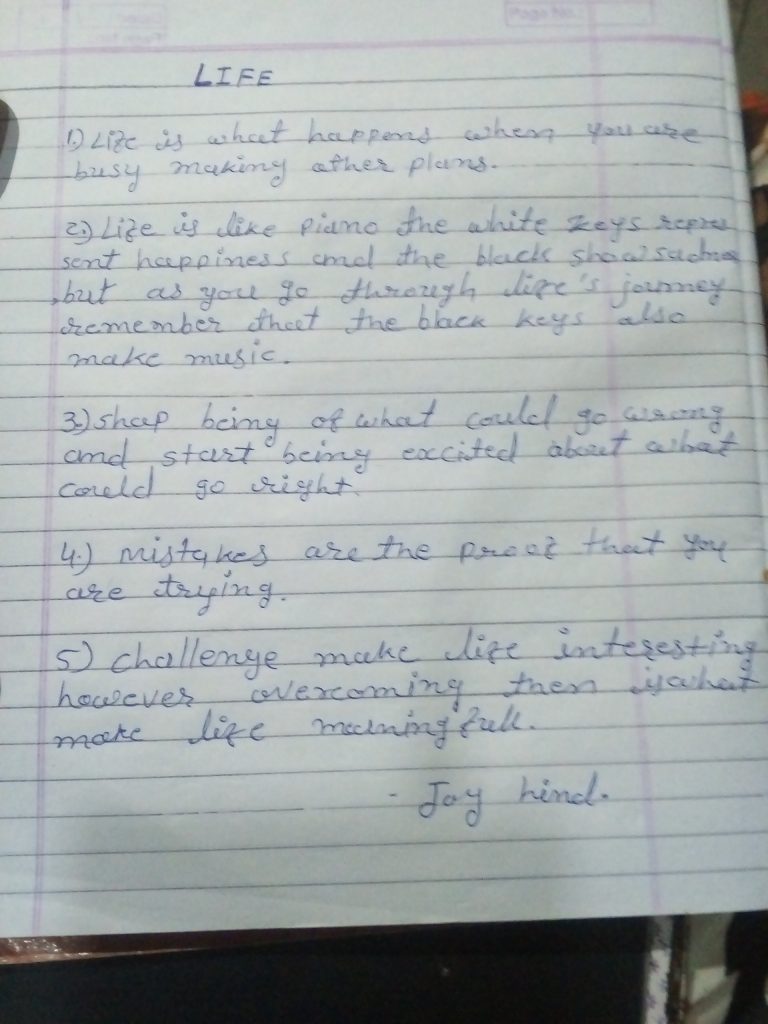 Page No.:
LIFE
1) Life is what happens when you are
busy making other plans.
2) Life is like piano the white keys repre
sent happiness and the black show sadnes
but as you go through life's journey
remember that the black keys also
make music.
3.) shap being of what could go wrong
and start being excited about what
could go right.
4.) mistakes are the proof that you
are trying.
5) challenge make life interesting
however overcoming them is what
make life meaningfull.
- Jay hind.